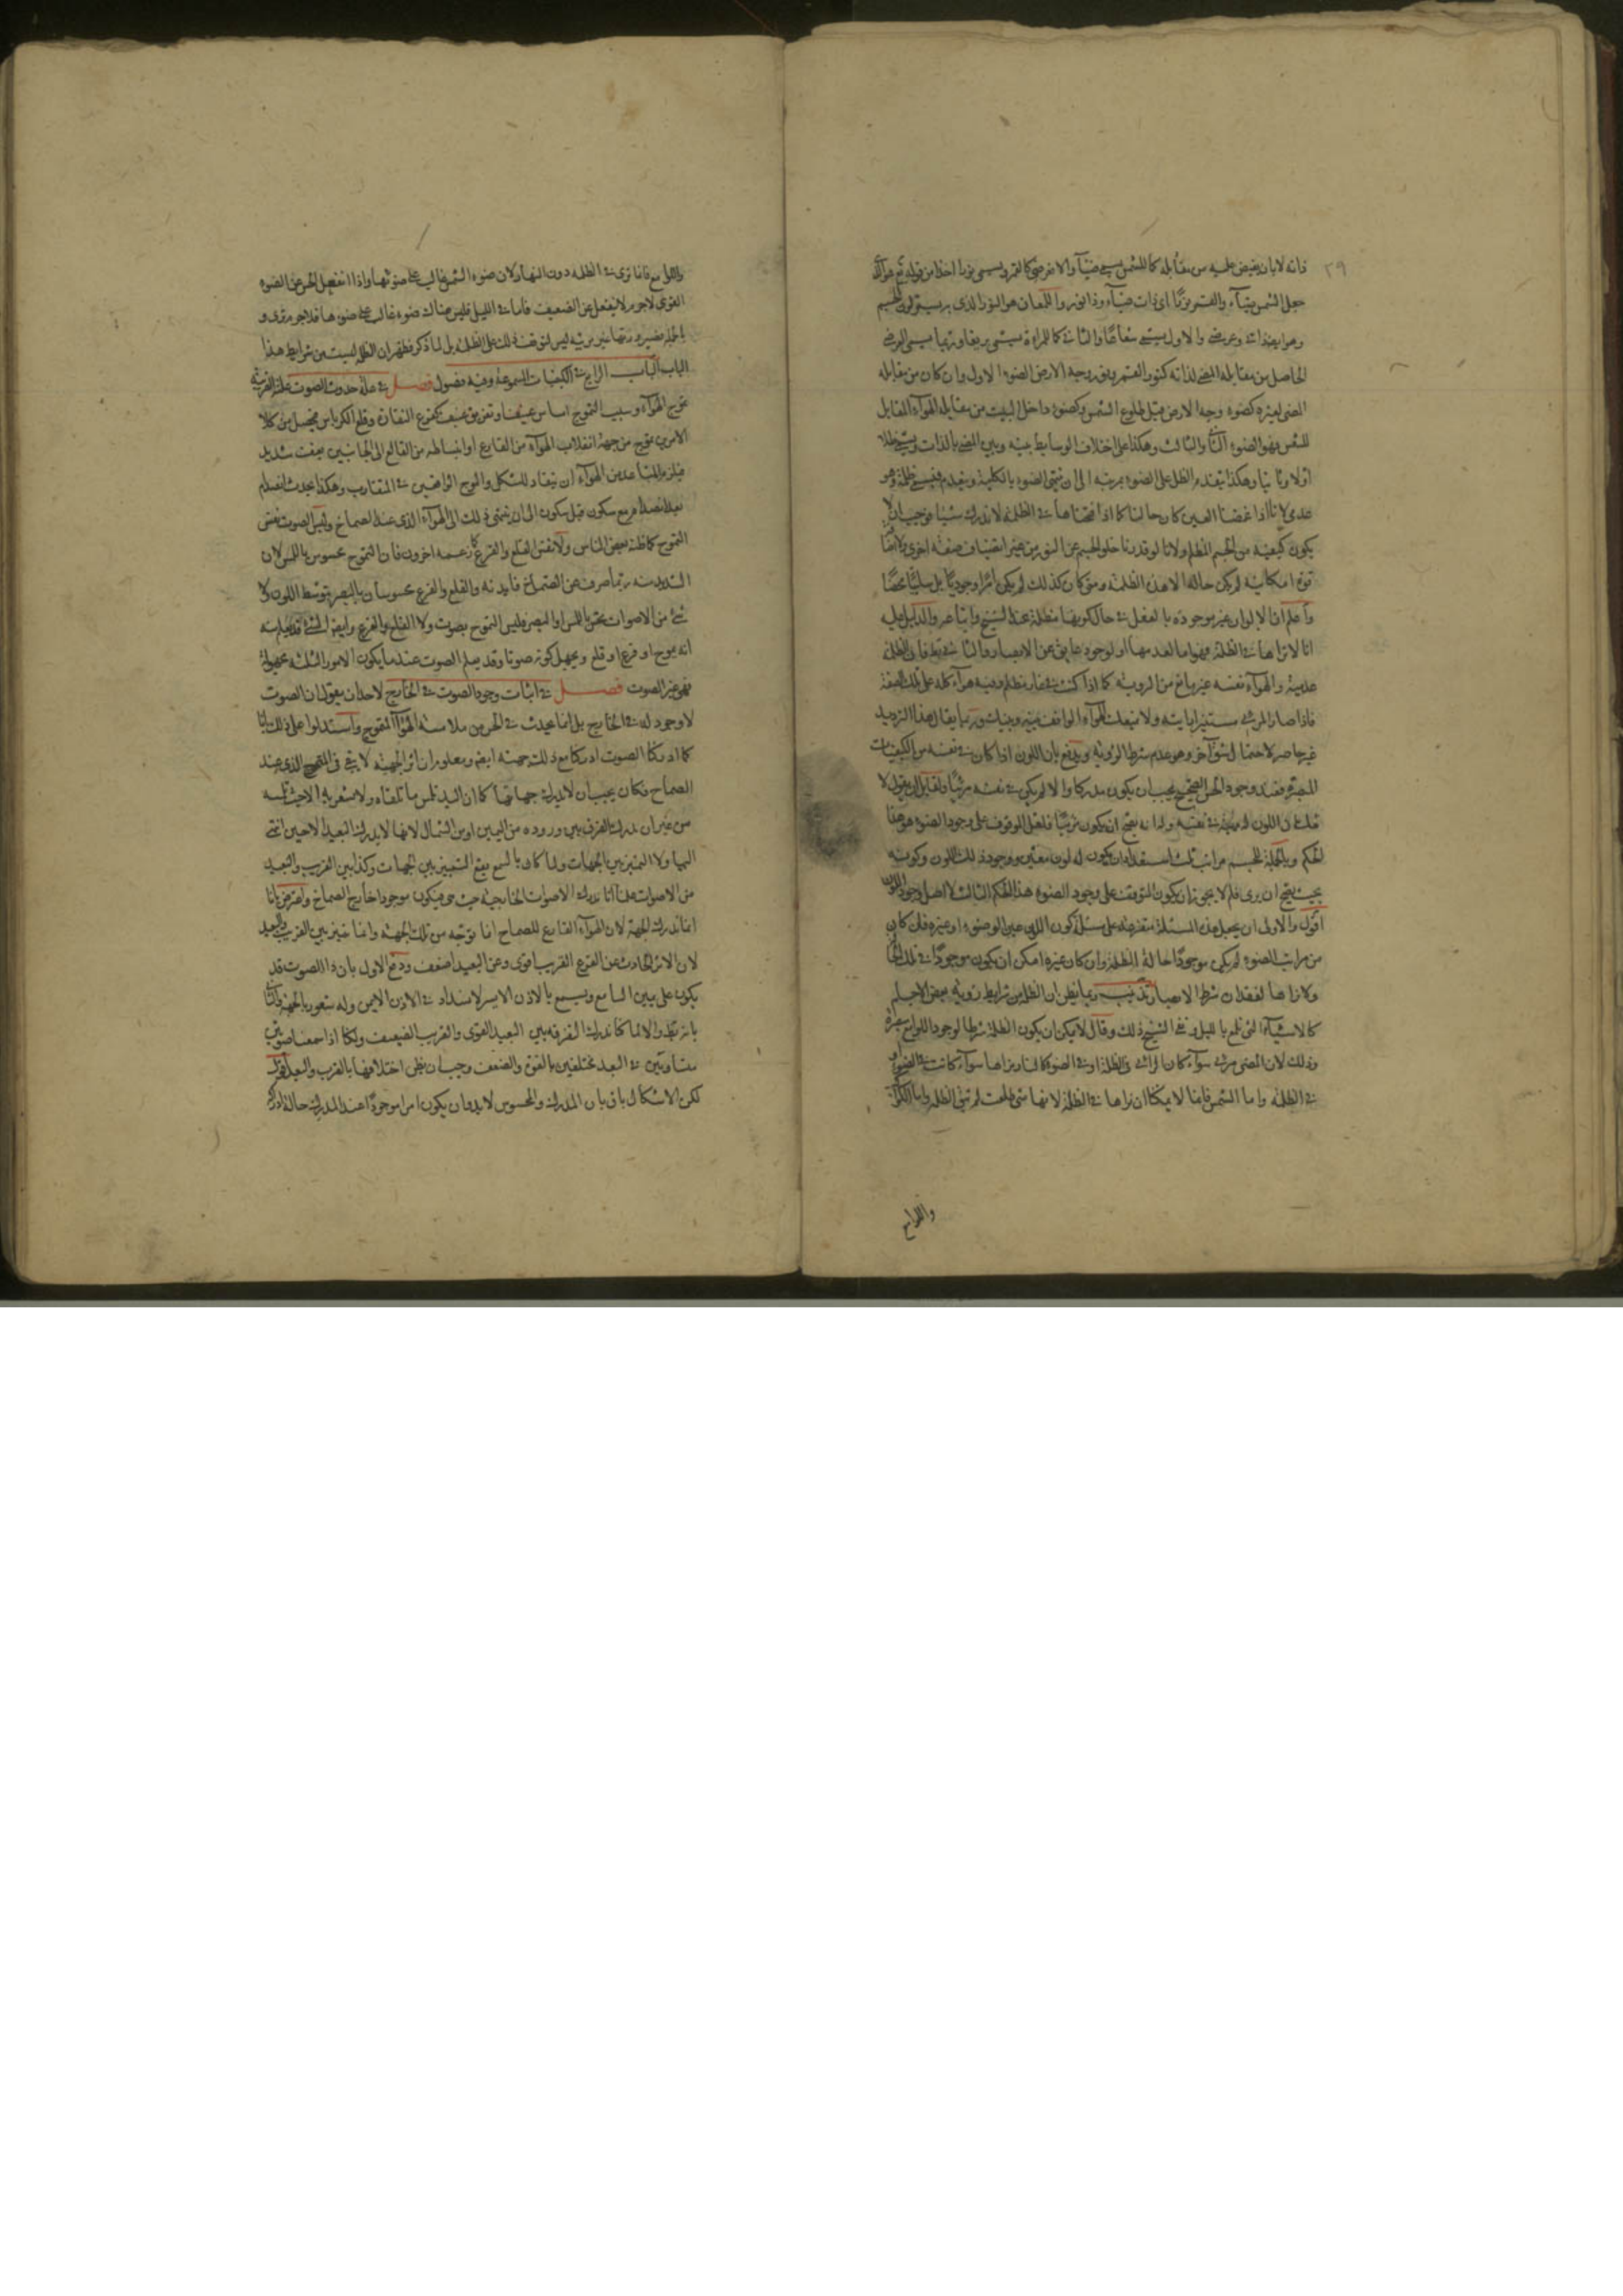 ذاته لا بان يفيض عليه من مقابله كما للشمس يسمى ضياء والا فعرضي كما للقمر ويسمى نورا اخذا من قوله تع هو الذي
جعل الشمس ضياء والقمر نورًا اى ذات ضياء وذا نور واللمعان هو النور الذى به يستر لون الجسم
وهو ايضا ذاتى وعرضى والاول يسمى شعاعًا والثانى كما للمرآة يسمى بريقا وربما يسمى العرضى
الحاصل من مقابلة المضئ لذاته كنور القمر ونور وجه الارض الضوء الاول وان كان من مقابلة
المضئ لغيره كضوء وجه الارض قبل طلوع الشمس وكضوء داخل البيت من مقابلة الهواء المقابل
للشمس فهو الضوء الثانى والثالث وهكذا على اختلاف الوسائط بينه وبين المضئ بالذات ويسمى ظلا
اولا وثانيا وهكذا يتقدم الظل على الضوء بمرتبة الى ان ينتهى الضوء بالكلية وينعدم فيسمى ظلمة وهو
عدمى لانا اذا غمضنا العين كان حالنا كما اذا فتحناها فى الظلمة لا ندرك شيئا فوجب ان لا
يكون كيفية من الجسم المظلم ولانا لو قدرنا خلو الجسم عن النور من غير انضياف صفة اخرى
لم يكن حاله الا هذه الظلمة ومتى كان كذلك لم يكن امرا وجوديًا بل سلبيًا محضًا
واعلم ان الالوان غير موجودة بالفعل فى حال كونها مظلمة عند الشيخ واتباعه والدليل عليه
انا لا نراها فى الظلمة فهو اما لعدمها او لوجود عايق عن الابصار والثانى بط فان الظلمة
عدمية والهواء نفسه غير مانع من الروية كما اذا كنت فى غار مظلم وفيه هواء كله على تلك الصفة
فاذا صار المرئى مستنيرا رايته ولا يمنعك الهواء الواقف بينه وبينك وربما يقال هذا الترديد
غير حاصر لاحتمال شق آخر وهو عدم شرط الروية ويدفع بان اللون اذا كان فى نفسه من الكيفيات
المبصرة فعند وجود الحس الصحيح يجب ان يكون مدركا والا لم يكن فى نفسه مرئيًا ولقايل ان يقول لا
شك ان اللون له مهية فى نفسه وانه يصح ان يكون مرئيًا فلعل الموقوف على وجود الضوء هو هذا
الحكم وبالجملة للجسم مراتب ثلث استعداد ان يكون له لون معين ووجود ذلك اللون وكونه
بحيث يصح ان يرى فلم لا يجوز ان يكون المتوقف على وجود الضوء هذا الحكم الثالث لا اصل وجود اللون
اقول والاولى ان يجعل هذه المسئلة متفرعة على مسئلة كون اللون عين الضوء او غيره فان كان
من مراتب الضوء لم يكن موجودًا حالة الظلمة وان كان غيره امكن ان يكون موجودًا فى تلك الحال
ولا نراها لفقدان شرط الابصار تذنيب ربما يظن ان الظلم من شرايط روية بعض الاجسام
كالاشياء التى تلمع بالليل ونفى الشيخ ذلك وقال لا يمكن ان يكون الظلمة شرطا لوجود اللوامع مبصرة
وذلك لان المضئ مرئى سواء كان الرائى فى الظلمة او فى الضوء كالنار نراها سواء كانت فى الضوء او
فى الظلمة واما الشمس فانما لا يمكننا ان نراها فى الظلمة لانها متى طلعت لم تبق الظلمة واما الكواكب
واللوامع
واللوامع فانا نرى فى الظلمة دون النهار لان ضوء الشمس غالب على ضوئها واذا انفعل الحس عن الضوء
القوى لا جرم لا ينفعل عن الضعيف فاما فى الليل فليس هناك ضوء غالب على ضوئها فلا جرم ترى و
بالجملة فصيرورتها غير مرئية ليس لتوقف ذلك على الظلمة بل لما ذكر فظهر ان الظلمة ليست من شرايط هذا
الباب الباب الرابع فى الكيفيات المسموعة وفيه فصول فصل فى علة حدوث الصوت علته القريبة
تموج الهواء وسبب التموج امساس عنيف او تفريق عنيف كقرع النقارة وقلع الكرباس فيحصل من كلا
الامرين تموج من جهة انفلات الهواء من القارع او انبساطه من القالع الى الجانبين بعنف شديد
فيلزم المتباعد من الهواء ان ينقاد للشكل والموج الواقعين فى المتقارب وهكذا يحدث انصدام
بعد انصدام مع سكون قبل سكون الى ان ينتهى ذلك الى الهواء الذى عند الصماخ وليس الصوت نفس
التموج كما ظنه بعض الناس ولا نفس القلع والقرع كما زعمه اخرون فان التموج محسوس باللمس لان
الشديد منه ربما صرف عن الصماخ فابدنه والقلع والقرع محسوسان بالبصر بتوسط اللون ولا
شئ من الاصوات يحس باللمس او البصر فليس التموج بصوت ولا القلع والقرع وايضا الشئ قد يعلم منه
انه موج او قرع او قلع ويجهل كونه صوتا وقد يعلم الصوت عند ما يكون الامور الثلثة مجهولة
فهو غير الصوت فصل فى اثبات وجود الصوت فى الخارج لاحد ان يقول ان الصوت
لا وجود له فى الخارج بل انما يحدث فى الحس من ملامسة الهواء المتموج واستدلوا على ذلك بانا
كما ادركنا الصوت ادركنا مع ذلك جهته ايضا ومعلوم ان اثر الجهة لا يبقى فى التموج الذى عند
الصماخ فكان يجب ان لا يدرك جهاتها كما ان اليد تلمس ما تلقاه ولا يشعر به الا حيث تلمسه
من غير ان يدرك الفرق بين وروده من اليمين او من الشمال لانها لا يدرك البعيد الا حين انتهى
اليها ولا التميز بين الجهات ولما كان بالسمع يقع التمييز بين الجهات وكذا بين القريب والبعيد
من الاصوات علمنا انا ندرك الاصوات الخارجية حيث هى فيكون موجودا خارج الصماخ واعترض بانا
انما ندرك الجهة لان الهواء القارع للصماخ انما توجه من تلك الجهة وانما نميز بين القريب والبعيد
لان الاثر الحادث عن القرع القريب اقوى وعن البعيد اضعف ودفع الاول بان ذا الصوت قد
يكون على يمين السامع ويسمع بالاذن الايسر لانسداد فى الاذن الايمن وله شعور بالجهة والثانى
بانه بط والا لما كنا ندرك التفرقة بين البعيد القوى والقريب الضعيف ولكنا اذا سمعنا صوتين
متساويين فى البعد مختلفين بالقوة والضعف وجب ان نظن اختلافهما بالقرب والبعد اقول
لكن الاشكال باق بان المدرك والمحسوس لا بد وان يكون امرا موجودًا عند المدرك حالة ادراكه